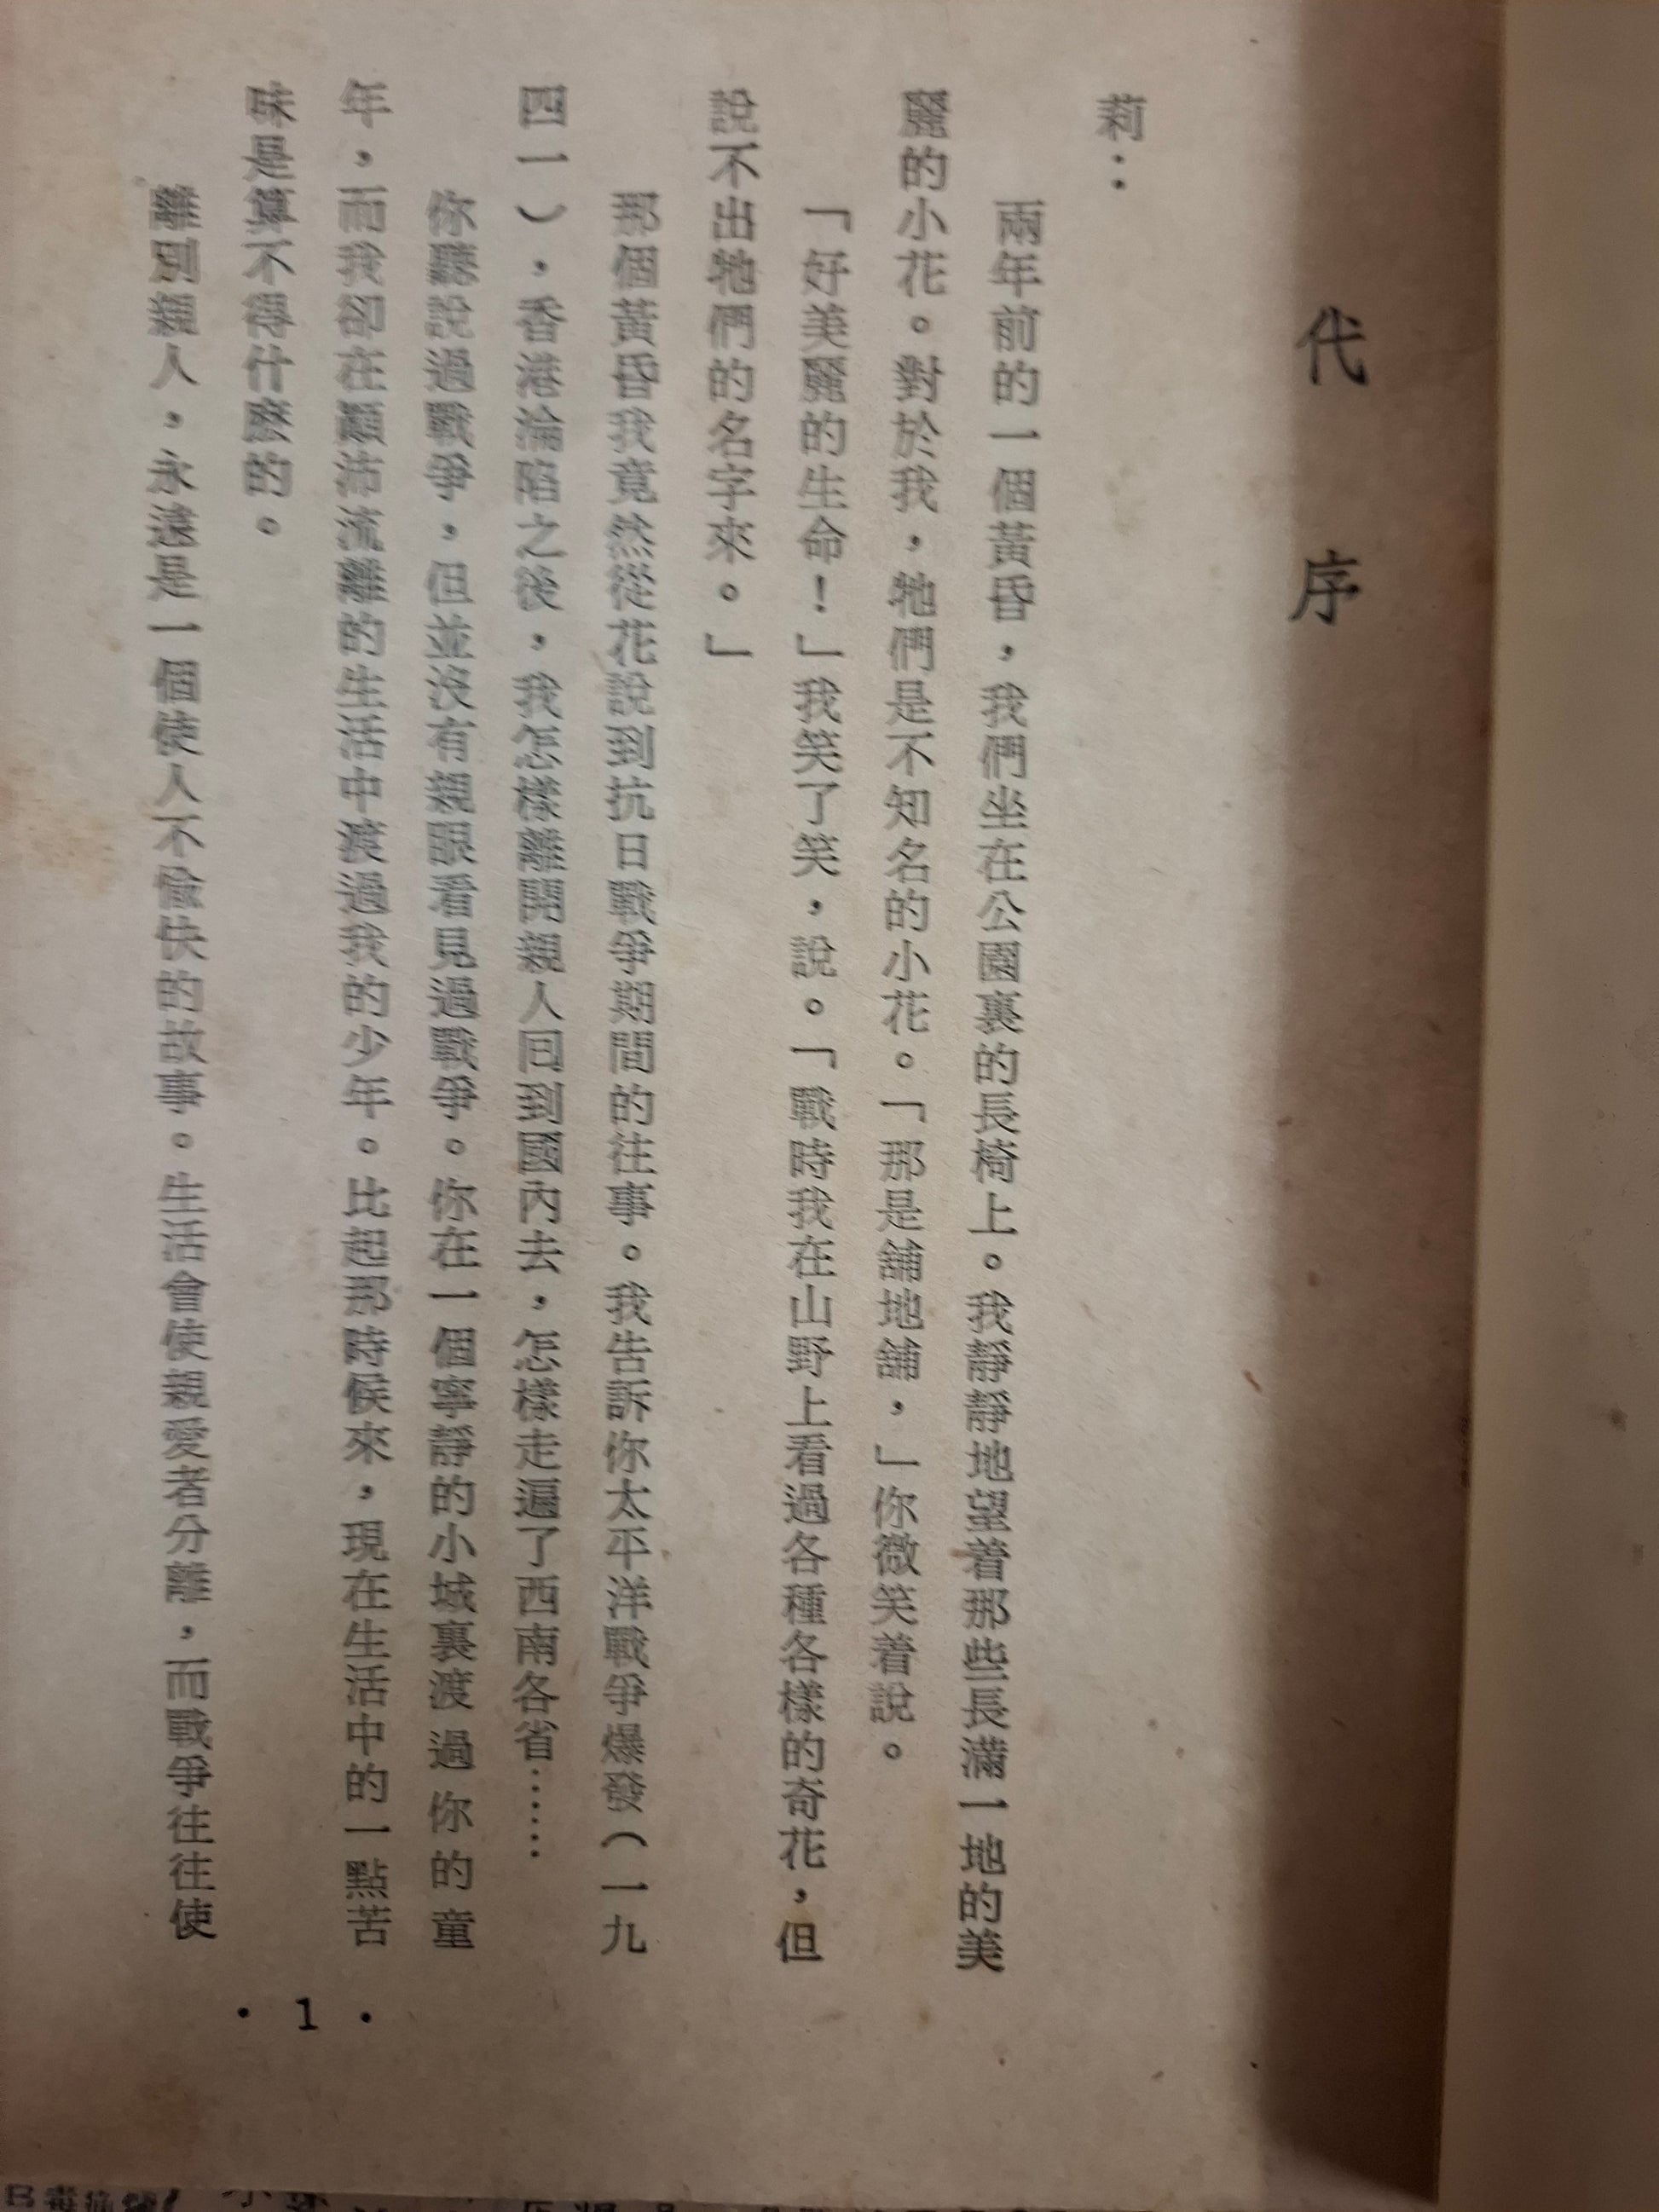 代序
莉：
兩年前的一個黃昏，我們坐在公園裏的長椅上。我靜靜地望着那些長滿一地的美
麗的小花。對於我，牠們是不知名的小花。「那是舖地舖，」你微笑着說。
「好美麗的生命！」我笑了笑，說。「戰時我在山野上看過各種各樣的奇花，但
說不出牠們的名字來。」
那個黃昏我竟然從花說到抗日戰爭期間的往事。我告訴你太平洋戰爭爆發（一九
四一），香港淪陷之後，我怎樣離開親人囘到國內去，怎樣走遍了西南各省……
你聽說過戰爭，但並沒有親眼看見過戰爭。你在一個寧靜的小城裏渡過你的童
年，而我卻在顚沛流離的生活中渡過我的少年。比起那時候來，現在生活中的一點苦
味是算不得什麽的。
離別親人，永遠是一個使人不愉快的故事。生活會使親愛者分離，而戰爭往往使
• 1 •